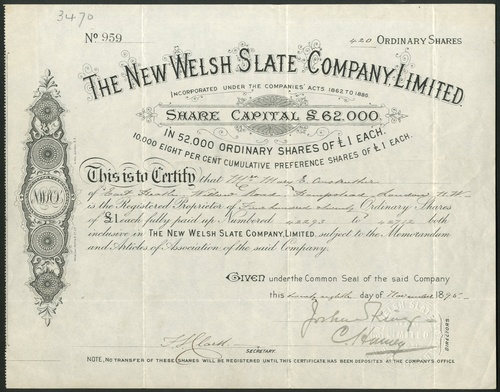 3470
No 959
420 ORDINARY SHARES
THE NEW WELSH SLATE COMPANY, LIMITED.
INCORPORATED UNDER THE COMPANIES' ACTS 1862 TO 1886.
SHARE CAPITAL £62,000.
IN 52,000 ORDINARY SHARES OF £1 EACH.
10,000 EIGHT PER CENT CUMULATIVE PREFERENCE SHARES OF £1 EACH.
This is to Certify that Mrs Mary E.
of East Heath Hampstead London N.W.
is the Registered Proprietor of Four hundred & twenty Ordinary Shares
of £1 each fully paid up Numbered 42293 to 42712 both
inclusive in THE NEW WELSH SLATE COMPANY, LIMITED, subject to the Memorandum
and Articles of Association of the said Company.
GIVEN under the Common Seal of the said Company
this twenty eighth day of November 1895.
DIRECTORS
SECRETARY.
NOTE, NO TRANSFER OF THESE SHARES WILL BE REGISTERED UNTIL THIS CERTIFICATE HAS BEEN DEPOSITED AT THE COMPANY'S OFFICE.